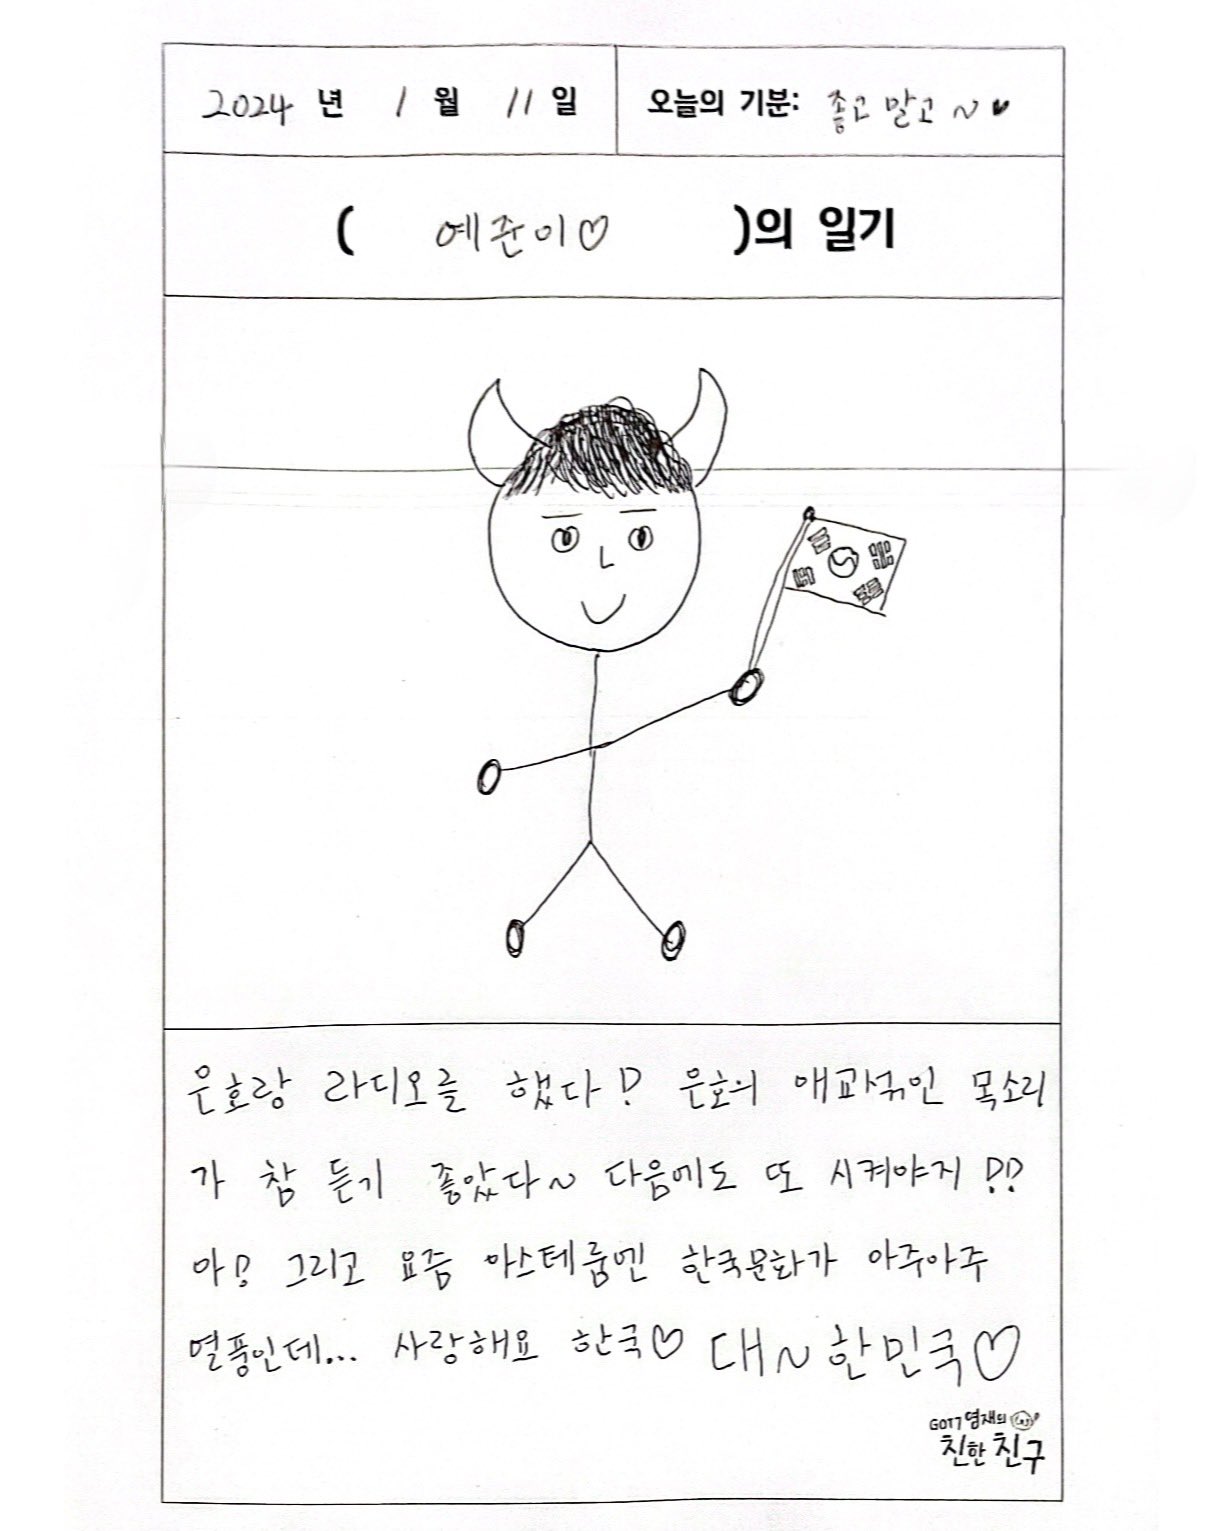 2024 년 1 월 11 일 오늘의 기분: 좋고 말고~♥
( 예준이♡ )의 일기
은호랑 라디오를 했다! 은호의 애교섞인 목소리
가 참 듣기 좋았다~ 다음에도 또 시켜야지!!
아! 그리고 요즘 아스테룸엔 한국문화가 아주아주
열풍인데... 사랑해요 한국♡ 대~한민국♡
GOT7 영재의
친한 친구